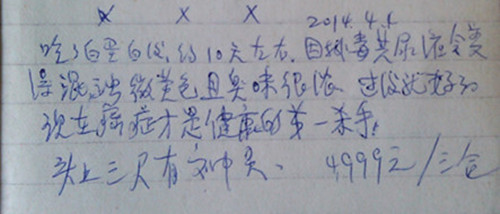 × × × 2014.4.1
吃了白蛋白后,约10天左右.因排毒其尿液会变
浑混浊微黄色且臭味很浓 过后就好了
现在癌症才是健康的第一杀手.
头上三只有 4999元/三盒